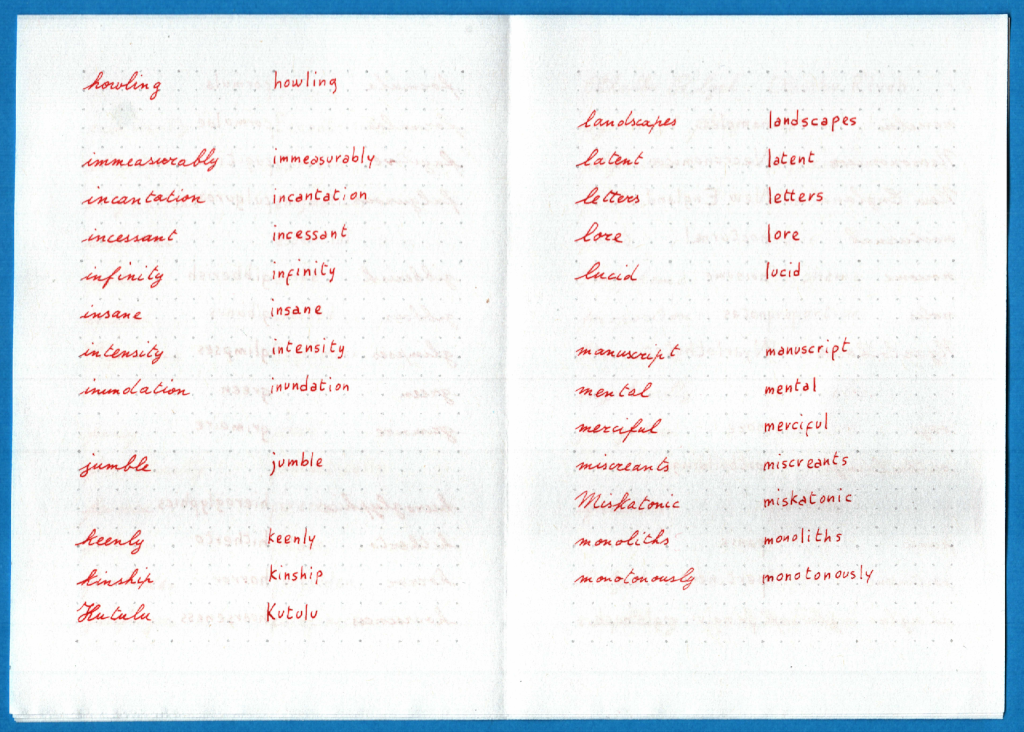 howling howling
immeasurably immeasurably
incantation incantation
incessant incessant
infinity infinity
insane insane
intensity intensity
inundation inundation
jumble jumble
keenly keenly
kinship kinship
Kutulu Kutulu
landscapes landscapes
latent latent
letters letters
lore lore
lucid lucid
manuscript manuscript
mental mental
merciful merciful
miscreants miscreants
Miskatonic miskatonic
monoliths monoliths
monotonously monotonously